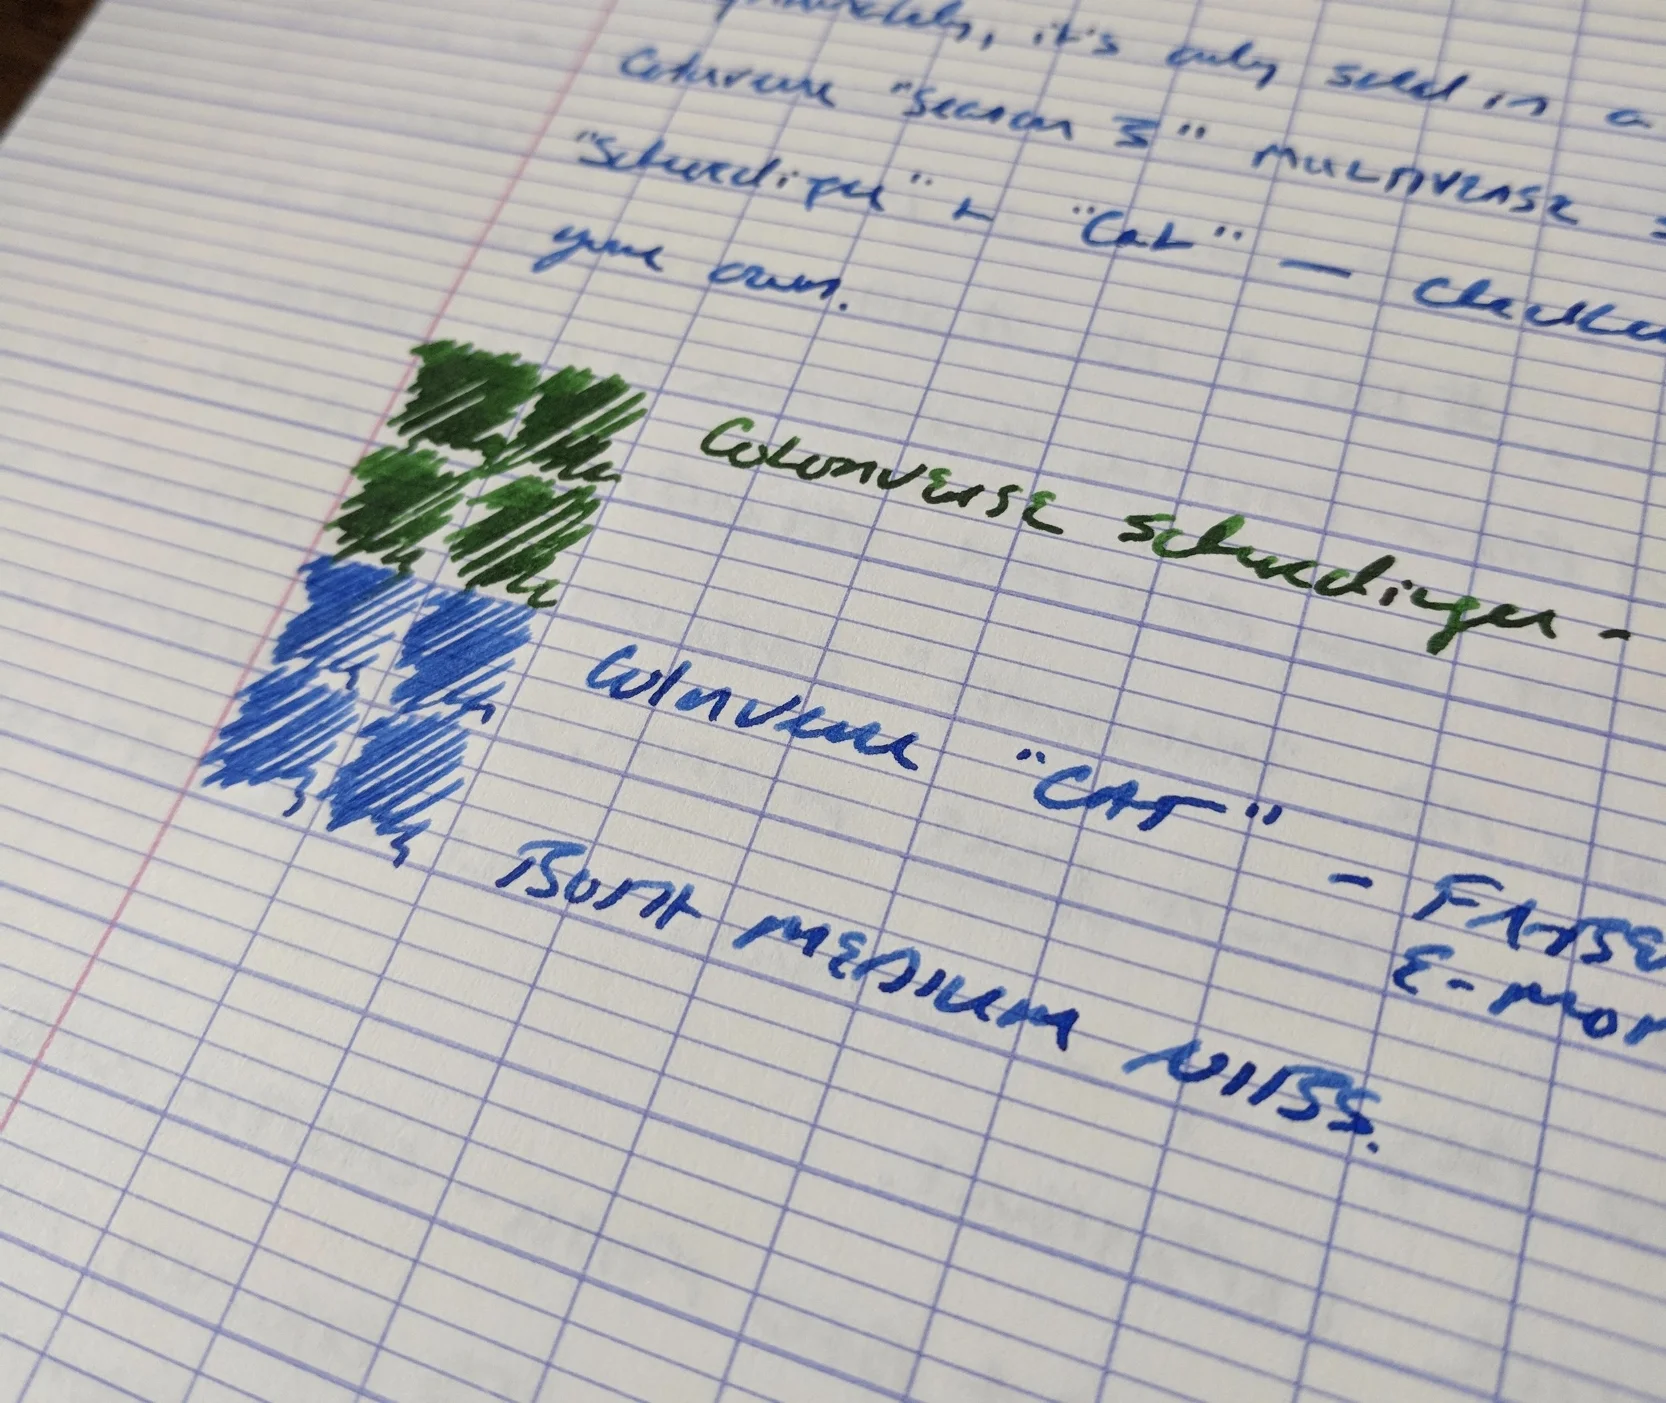 it's only sold in a
Colorverse "Season 3" MULTIVERSE
"Schrodinger" + "Cat" —
your own.
COLORVERSE Schrodinger -
Colorverse "CAT" - FABER
E-MO
BOTH MEDIUM NIBS.